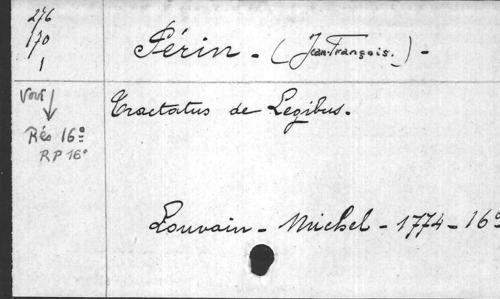 276
170
1
Périn - (Jean-François.) -
Voir
Rés 16º
RP 16º
Tractatus de Legibus.
Louvain - Michel - 1774 - 16º